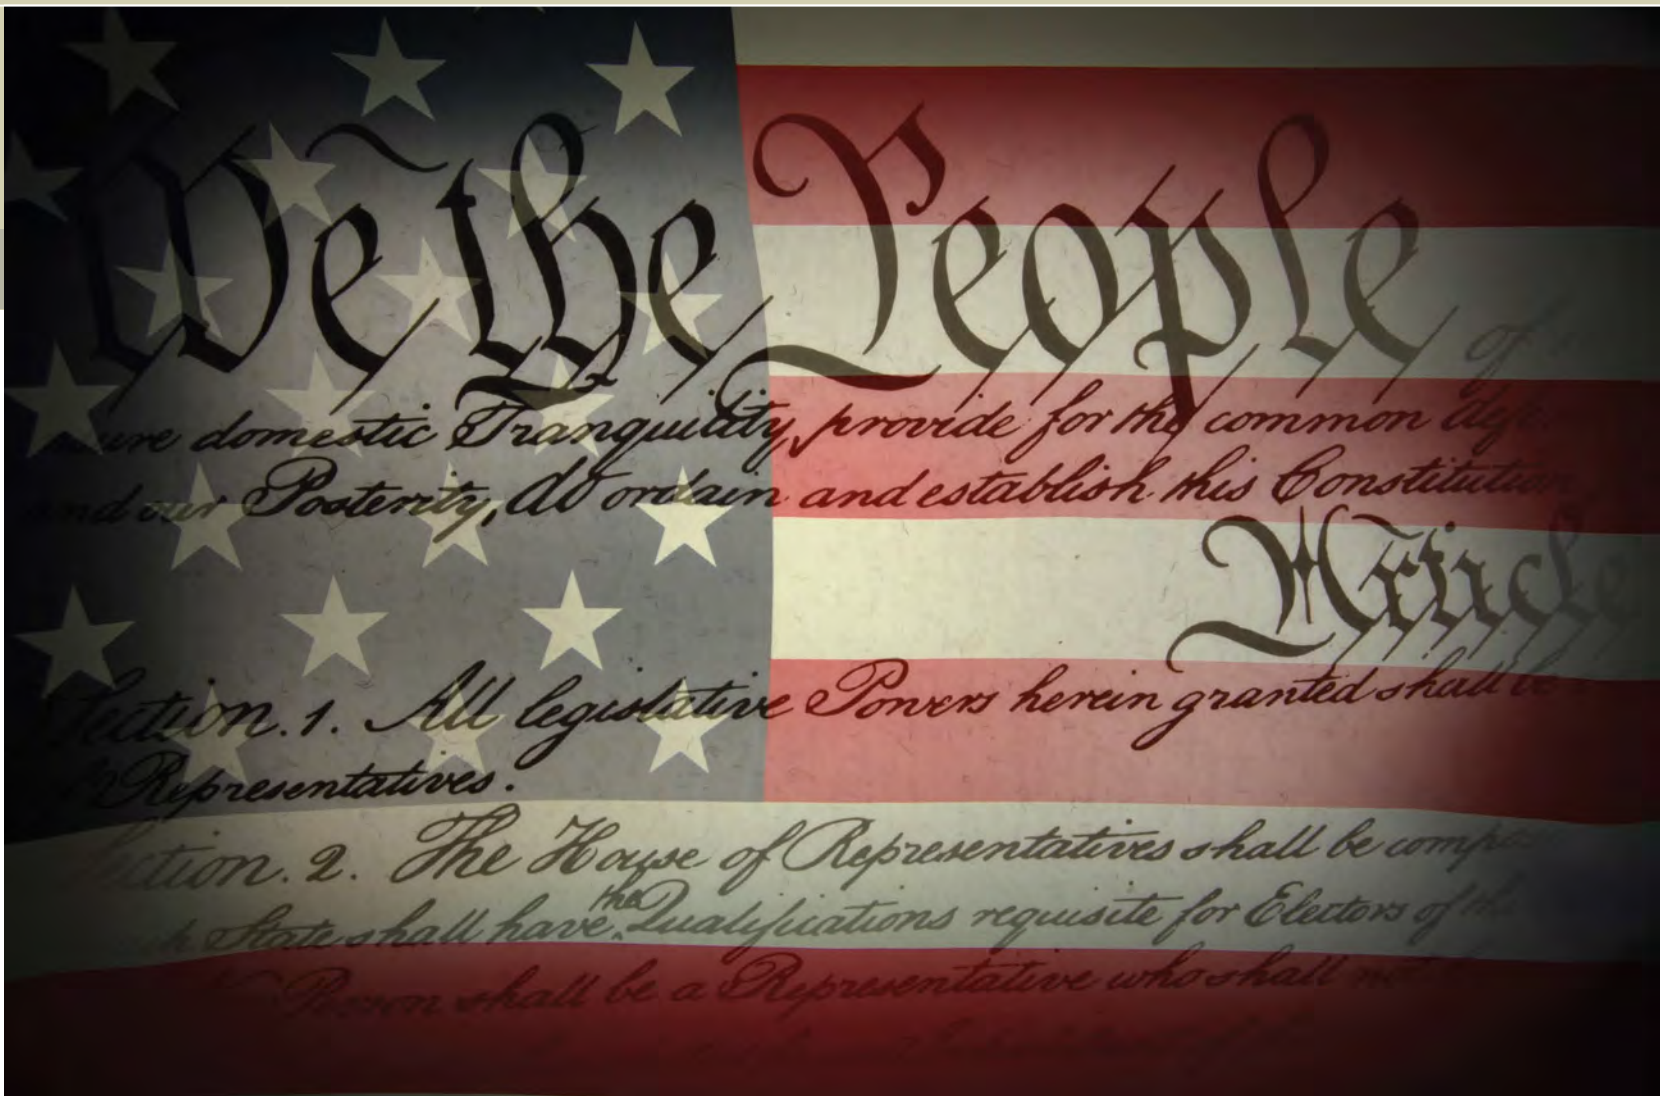 We the People of
domestic Tranquility, provide for the common
and our Posterity, do ordain and establish this Constitution
Article
Section. 1. All legislative Powers herein granted shall be
Representatives.
Section. 2. The House of Representatives shall be
State shall have the Qualifications requisite for Electors of the
Person shall be a Representative who shall not